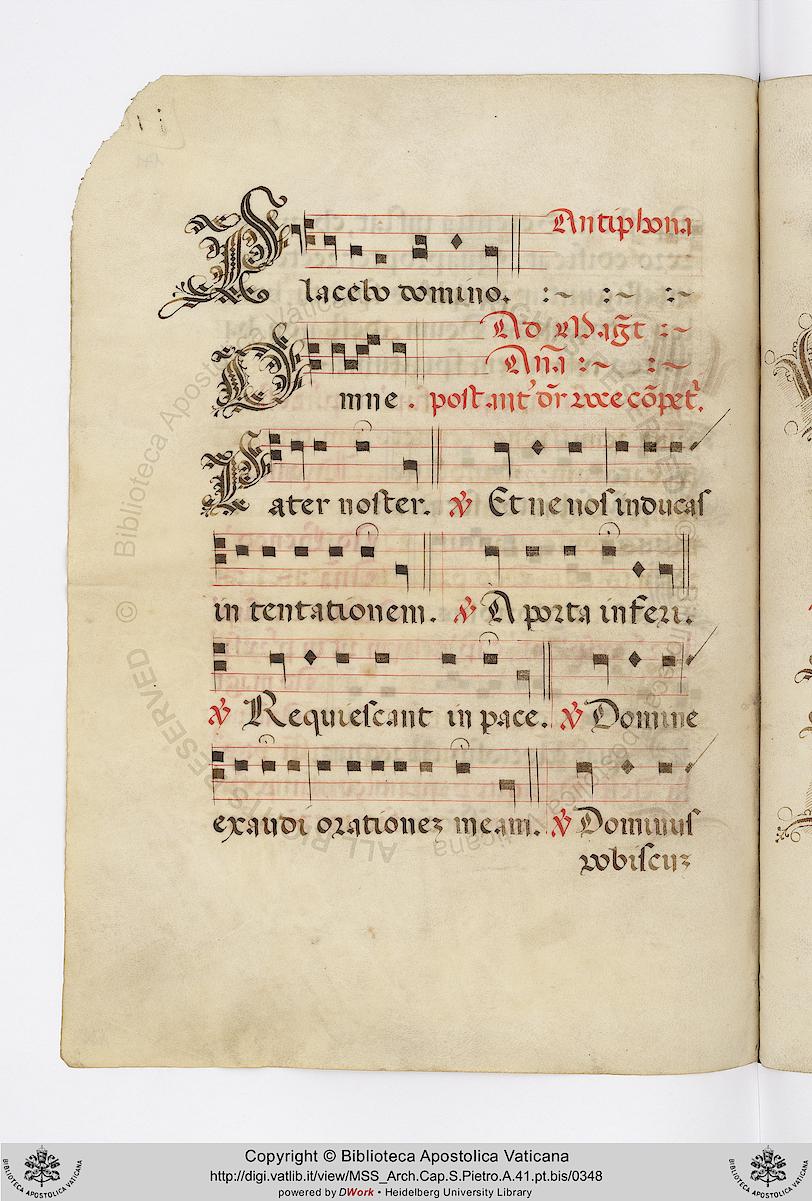 Antiphona
Placebo domino. :~ :~ :~
Ad Mag̃t :~
Anã :~ :~
Omne . post ant' dr̃ voce cõpet̃.
Pater noster. ℣ Et ne nos inducas
in tentationem. ℣ A porta inferi.
℣ Requiescant in pace. ℣ Domine
exaudi orationeꝫ meam. ℣ Dominus
vobiscuꝫ
© Biblioteca Apostolica Vaticana
ALL RIGHTS RESERVED
Copyright © Biblioteca Apostolica Vaticana
http://digi.vatlib.it/view/MSS_Arch.Cap.S.Pietro.A.41.pt.bis/0348
powered by DWork • Heidelberg University Library
BIBLIOTECA APOSTOLICA VATICANA
BIBLIOTECA APOSTOLICA VATICANA